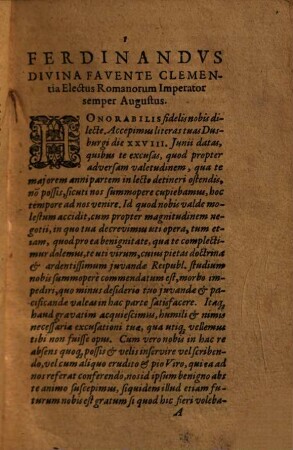 1
FERDINANDVS
DIVINA FAVENTE CLEMEN-
tia Electus Romanorum Imperator
semper Augustus.
HONORABILIS fidelis nobis di-
lecte. Accepimus literas tuas Dus-
burgi die XXVIII. Junii datas,
quibus te excusas, quod propter
adversam valetudinem, qua te
majorem anni partem in lecto detineri ostendis,
nō possis, sicuti nos summopere cupiebamus, hoc
tempore ad nos venire. Id quod nobis valde mo-
lestum accidit, cum propter magnitudinem ne-
gotii, in quo tua decrevimus uti opera, tum et-
iam, quod pro ea benignitate, qua te complecti-
mur dolemus, te ut virum, cujus pietas doctrina
& ardentissimum juvandæ Reipubl. studium
nobis summopere commendatum est, morbo im-
pediri, quo minus desiderio tuo juvandæ & pa-
cificandæ valeas in hac parte satisfacere. Itaq;
haud gravatim acquiescimus, humili & nimis
necessaria excusationi tuæ, qua utiq; vellemus
tibi non fuisse opus. Cum vero nobis in hac re
absens quoq; possis & velis inservire vel scriben-
do, vel cum aliquo erudito & pio Viro, qui ea ad
nos referat conferendo, nos id ipsum benigno abs
te animo suscepimus, siquidem illud etiam fu-
turum nobis est gratum si quod hic fieri voleba-
A